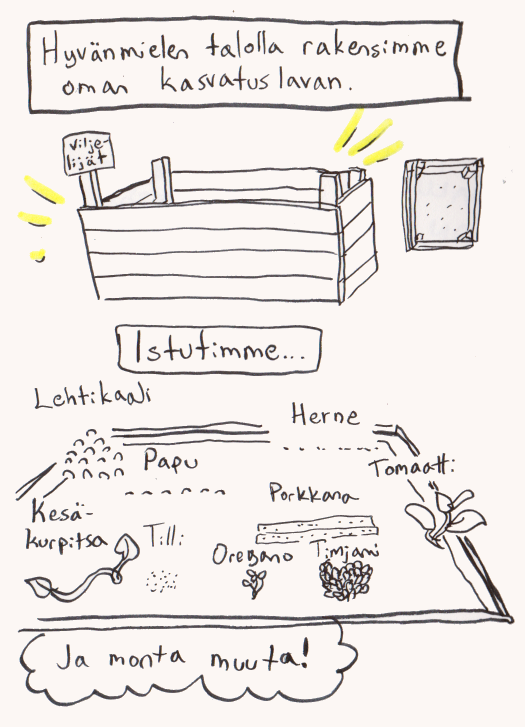 Hyvänmielen talolla rakensimme
oman kasvatuslavan.
Vilje-
lijät
Istutimme...
Lehtikaali
Herne
Papu
Tomaatti
Porkkana
Kesä-
kurpitsa
Tilli
Oregano
Timjami
Ja monta muuta!